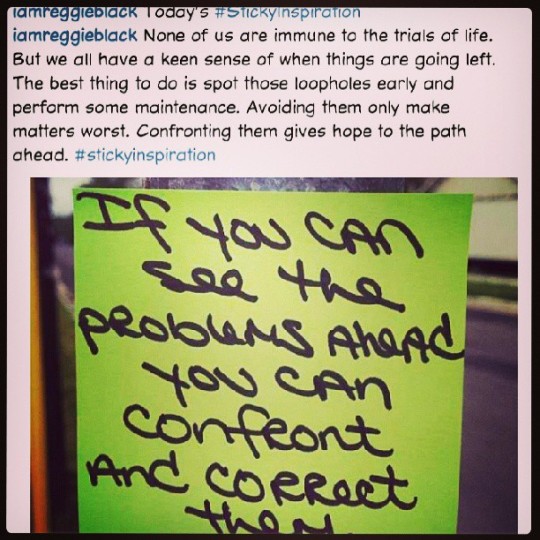 iamreggieblack Today's #StickyInspiration
iamreggieblack None of us are immune to the trials of life.
But we all have a keen sense of when things are going left.
The best thing to do is spot those loopholes early and
perform some maintenance. Avoiding them only make
matters worst. Confronting them gives hope to the path
ahead. #stickyinspiration
If you can
see the
problems Ahead
you can
confront
And correct
them